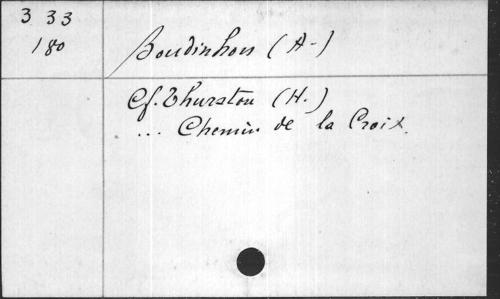 3 33
180
Boudinhon (A-)
Cf. Thurston (H.)
... Chemin de la Croix.